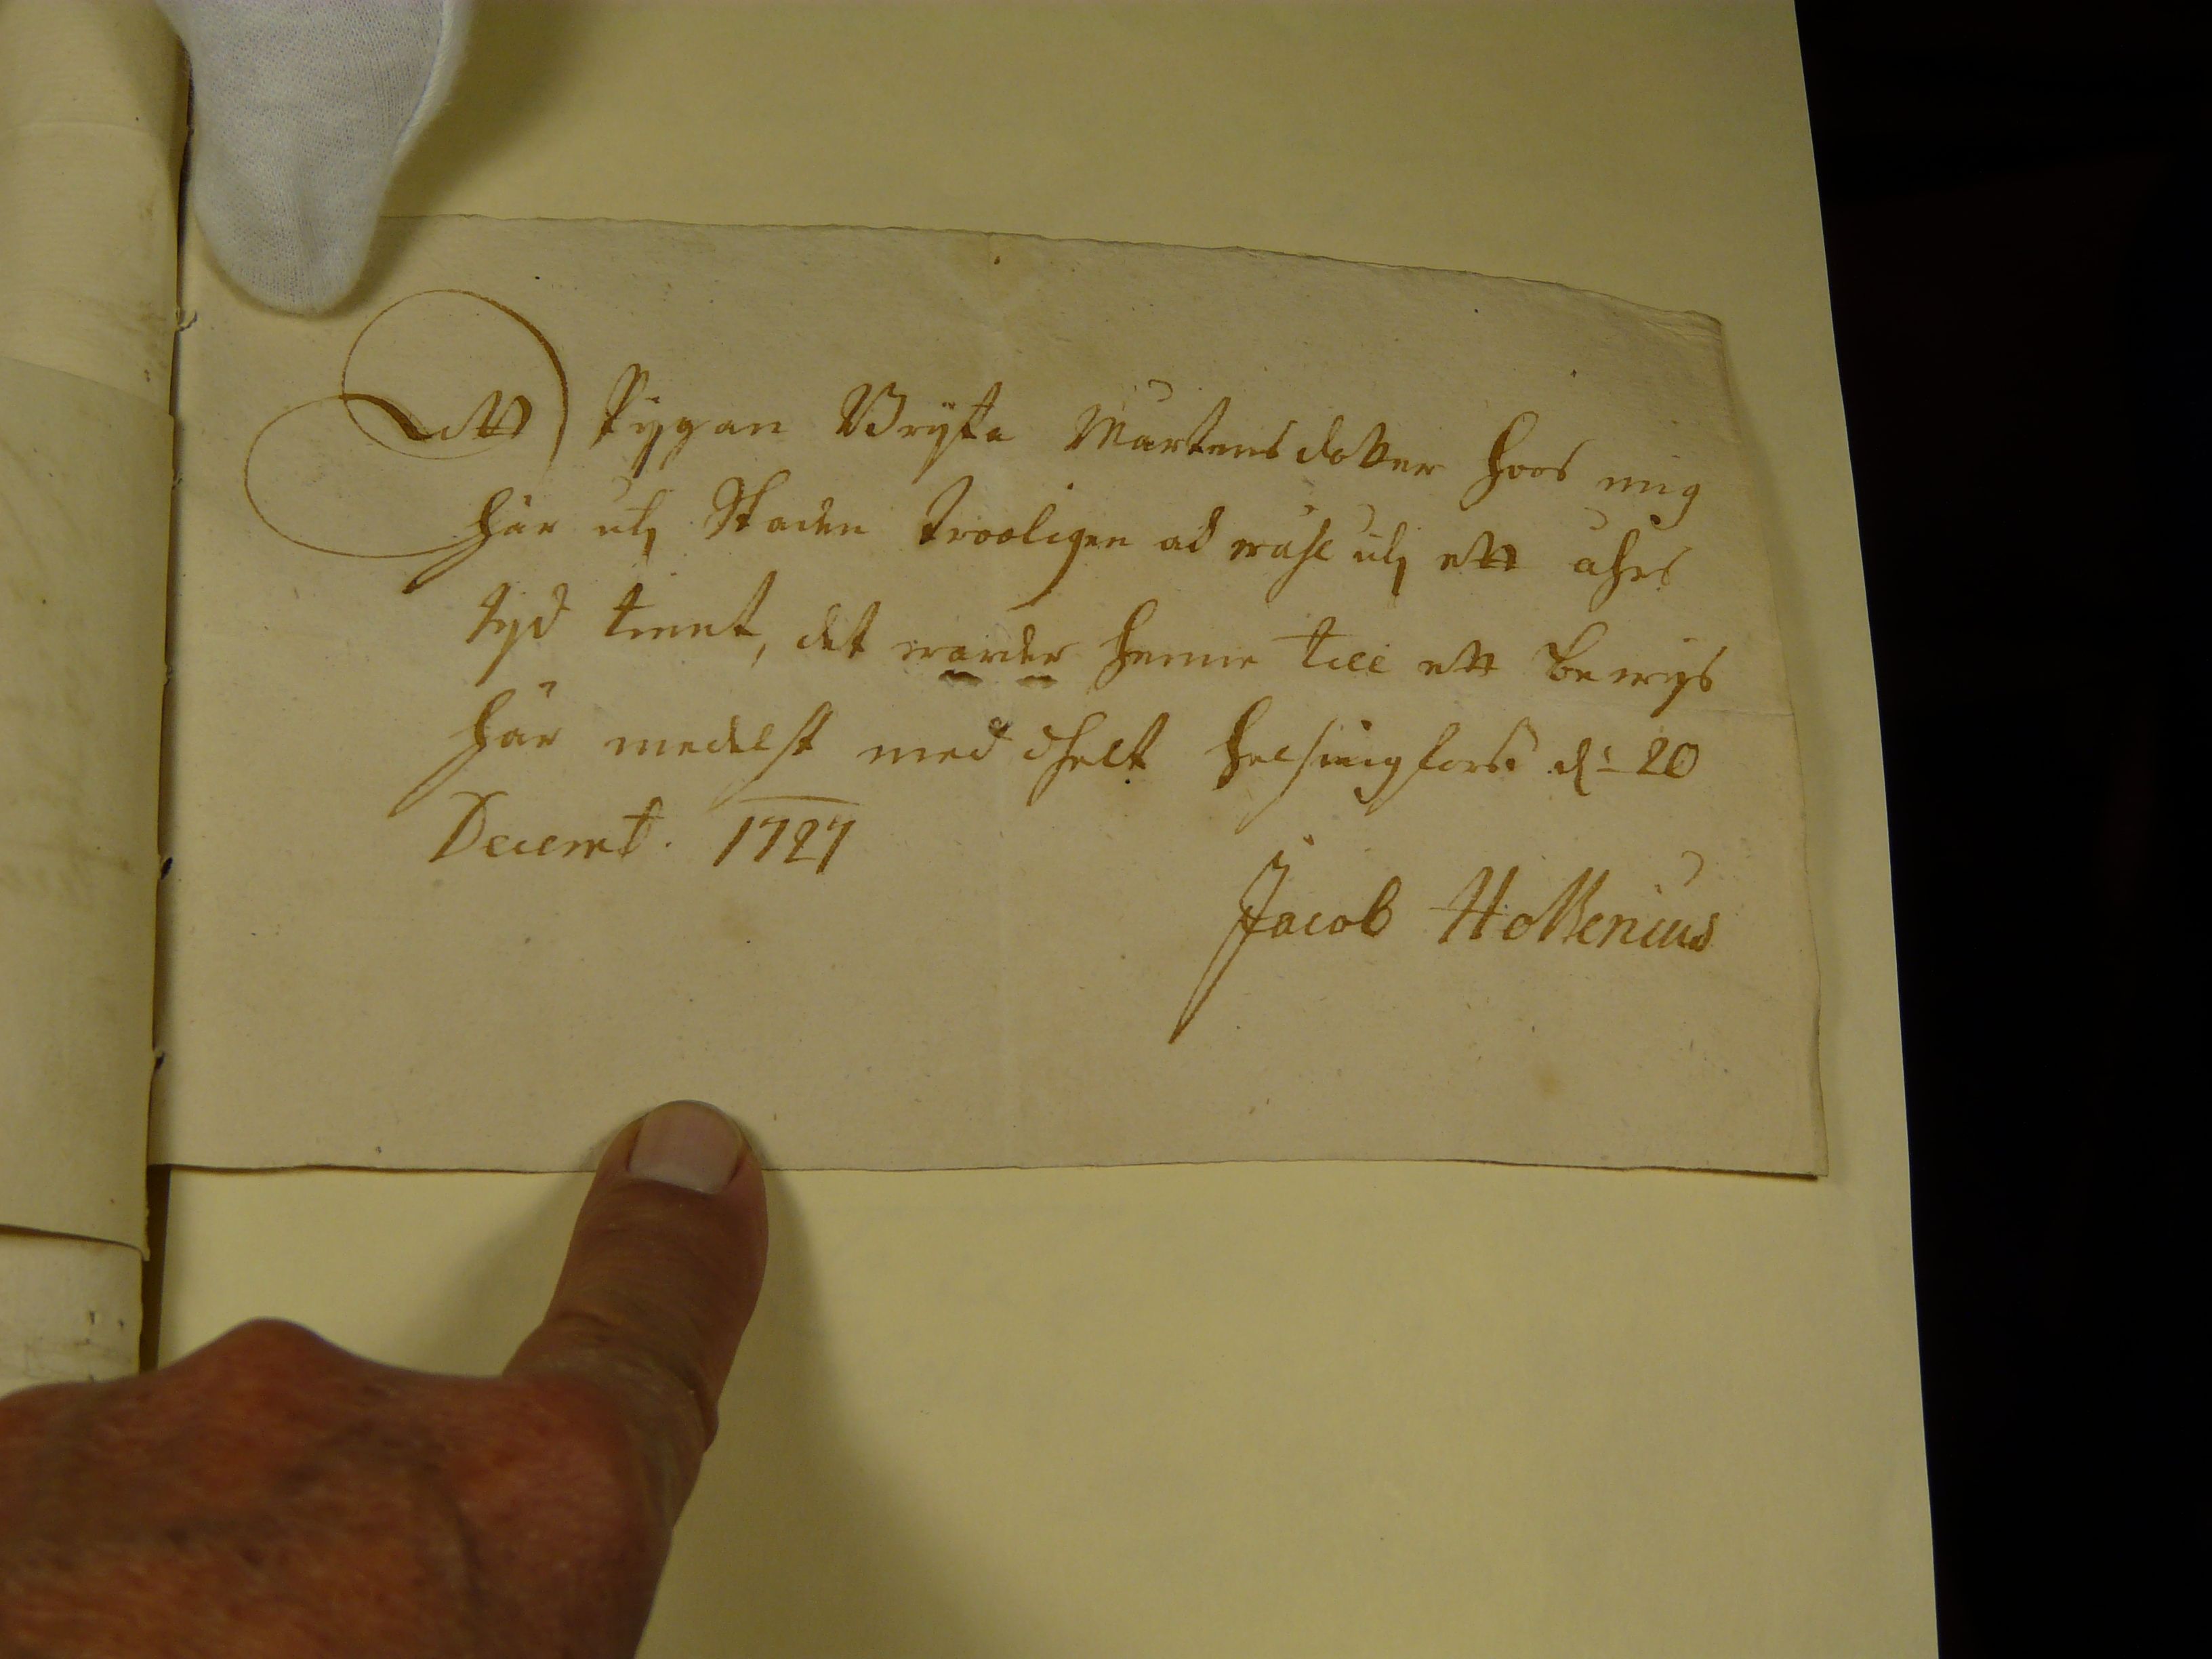 Att Pijgan Brijta Mårtens dotter hoos mig
här uthj Staden trooligen och wähl uthj ett åhrs
tyd tient, det warder henne till ett bewijs
här medelst med dhelt Helsingfors d: 20
Decemb. 1727
Jacob Hottenius